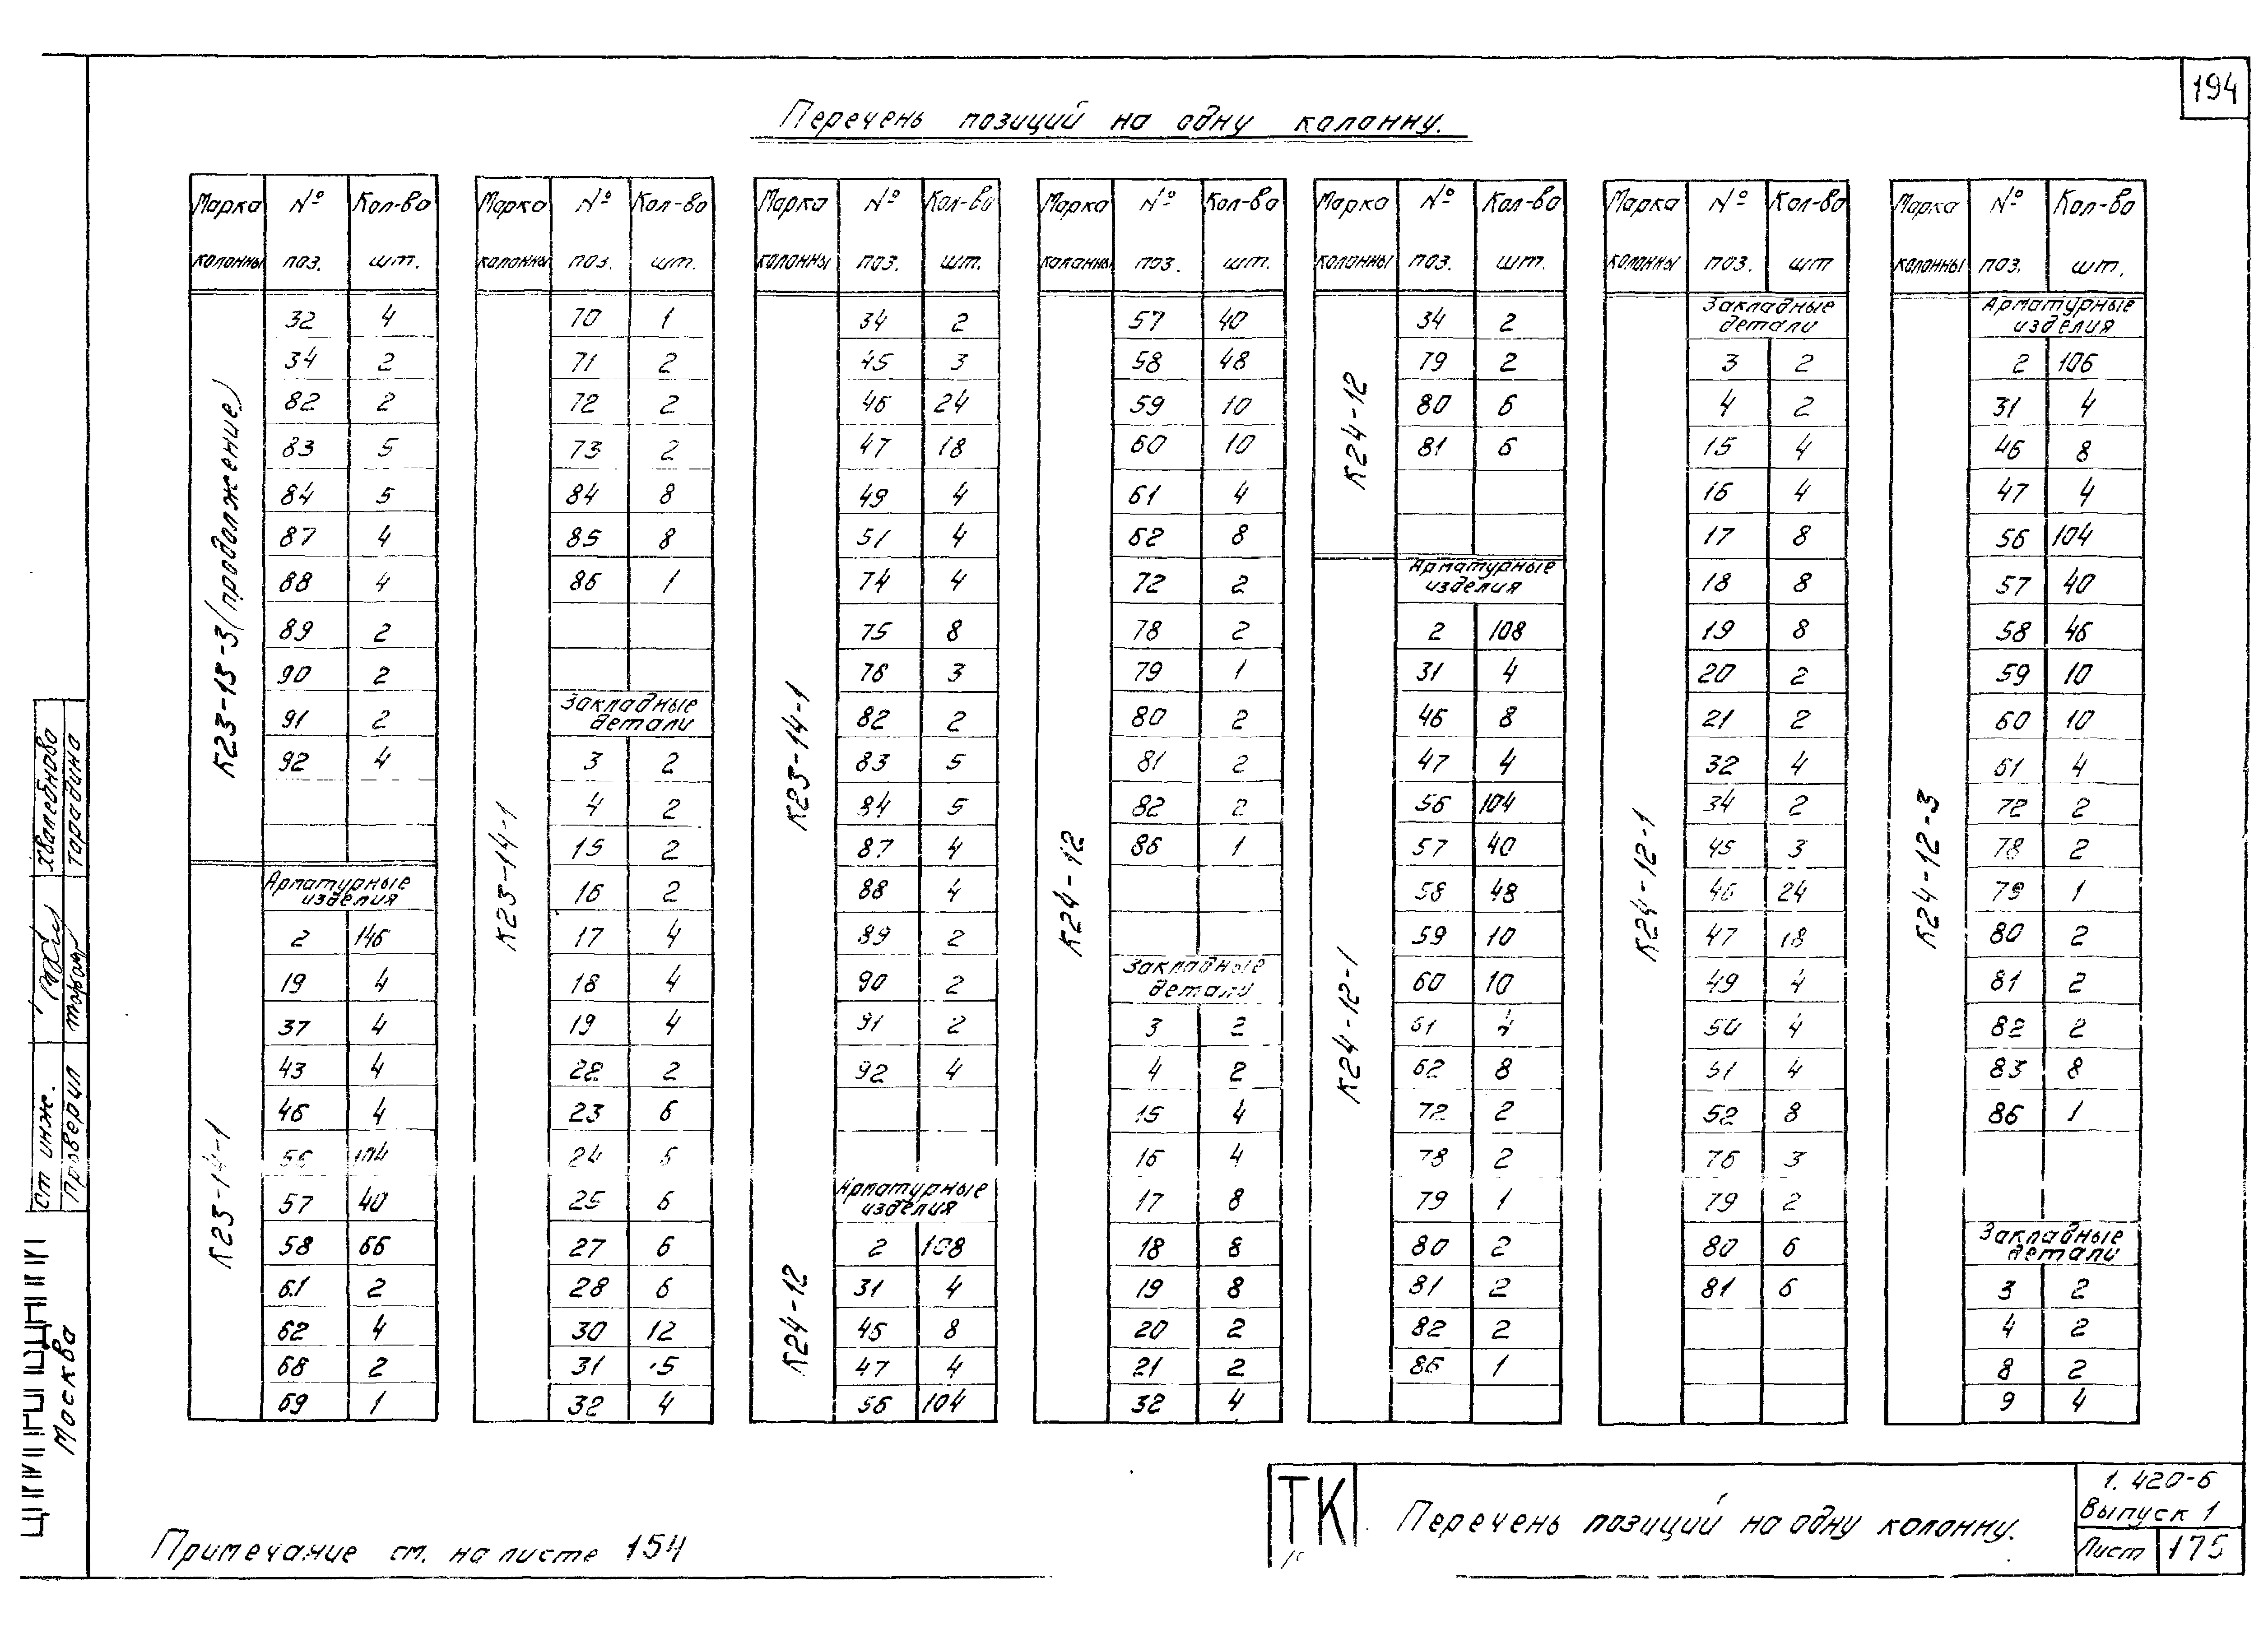 194
Перечень позиций на одну колонну.
Марка колонны № поз. Кол-во шт.
К23-13-3 (продолжение)
32 4
34 2
82 2
83 5
84 5
87 4
88 4
89 2
90 2
91 2
92 4
К23-14-1
Арматурные изделия
2 146
19 4
37 4
43 4
46 4
56 104
57 40
58 66
61 2
62 4
68 2
69 1
Марка колонны № поз. Кол-во шт.
К23-14-1
70 1
71 2
72 2
73 2
84 8
85 8
86 1
Закладные детали
3 2
4 2
15 2
16 2
17 4
18 4
19 4
22 2
23 6
24 6
25 6
27 6
28 6
30 12
31 5
32 4
Марка колонны № поз. Кол-во шт.
К23-14-1
34 2
45 3
46 24
47 18
49 4
51 4
74 4
75 8
76 3
82 2
83 5
84 5
87 4
88 4
89 2
90 2
91 2
92 4
К24-12
Арматурные изделия
2 108
31 4
46 8
47 4
56 104
Марка колонны № поз. Кол-во шт.
К24-12
57 40
58 48
59 10
60 10
61 4
62 8
72 2
78 2
79 1
80 2
81 2
82 2
86 1
Закладные детали
3 2
4 2
15 4
16 4
17 8
18 8
19 8
20 2
21 2
32 4
Марка колонны № поз. Кол-во шт.
К24-12
34 2
79 2
80 6
81 6
К24-12-1
Арматурные изделия
2 108
31 4
46 8
47 4
56 104
57 40
58 48
59 10
60 10
61 4
62 8
72 2
78 2
79 1
80 2
81 2
82 2
86 1
Марка колонны № поз. Кол-во шт
К24-12-1
Закладные детали
3 2
4 2
15 4
16 4
17 8
18 8
19 8
20 2
21 2
32 4
34 2
45 3
46 24
47 18
49 4
50 4
51 4
52 8
76 3
79 2
80 6
81 6
Марка колонны № поз. Кол-во шт.
К24-12-3
Арматурные изделия
2 106
31 4
46 8
47 4
56 104
57 40
58 46
59 10
60 10
61 4
72 2
78 2
79 1
80 2
81 2
82 2
83 8
86 1
Закладные детали
3 2
4 2
8 2
9 4
Ст инж. Хваледнова
Проверил Торадина
Москва
Примечание см. на листе 154
ТК
Перечень позиций на одну колонну.
1.420-6
Выпуск 1
Лист 175